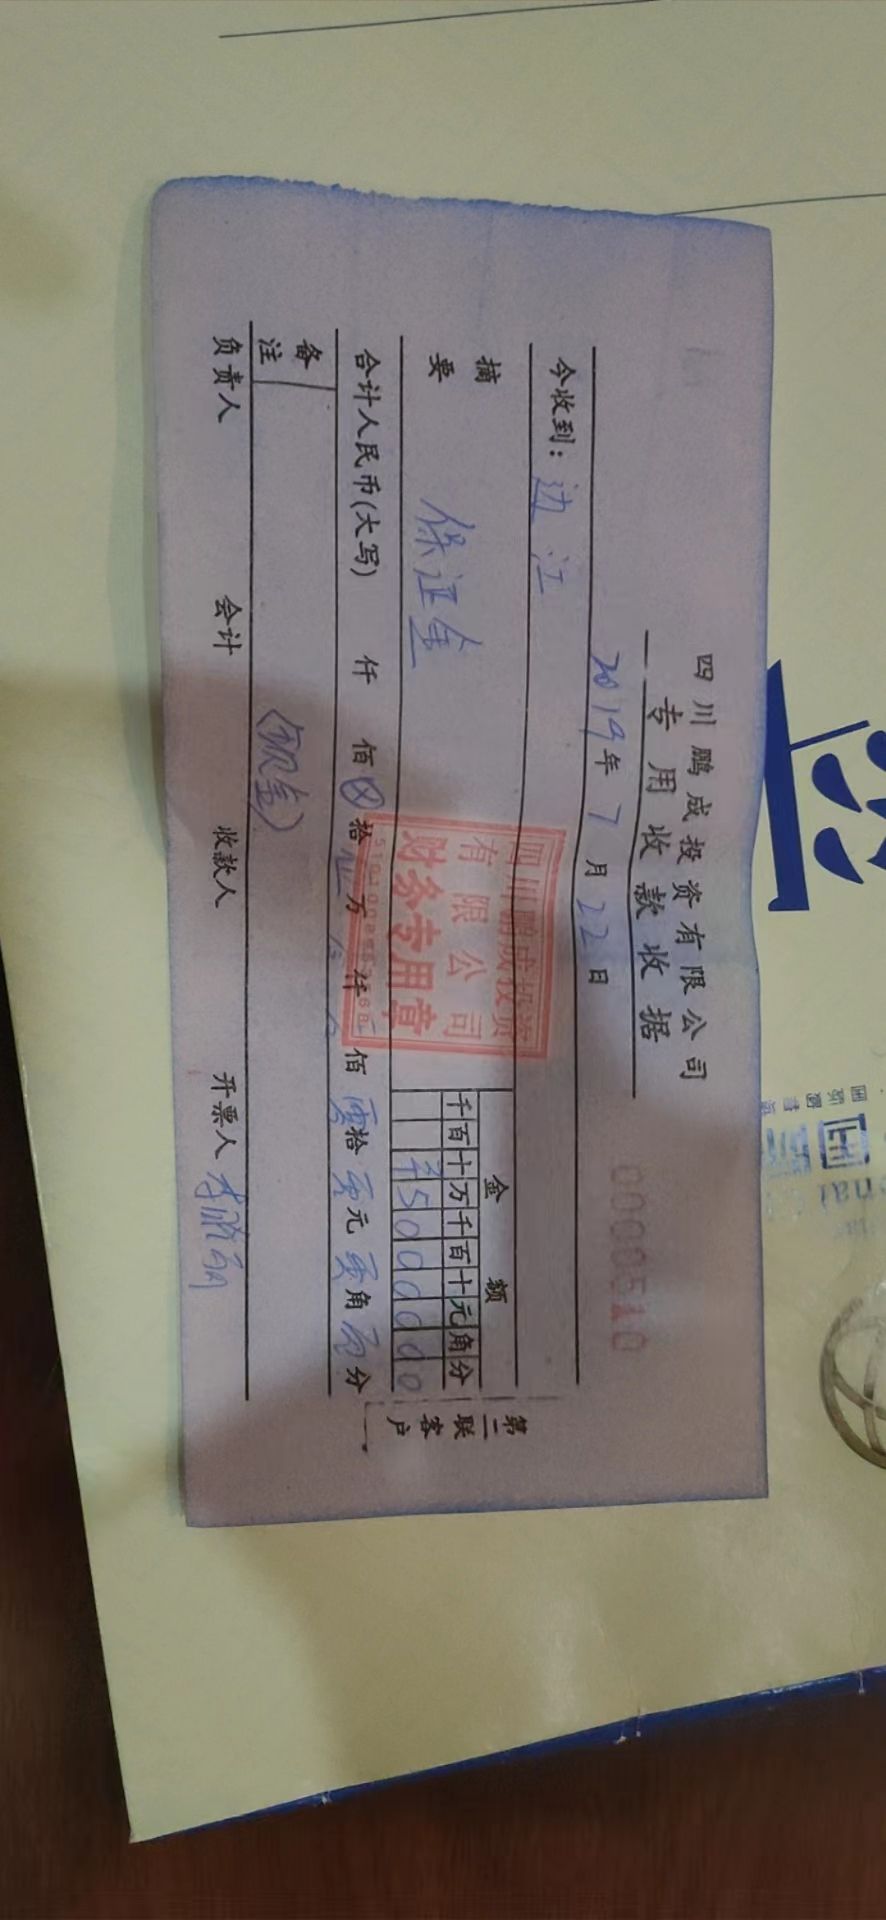 四川鹏成投资有限公司
专用收款收据
0000510
2019年7月22日
今收到：边江
摘要
保证金
金额
千百十万千百十元角分
¥5000000
合计人民币(大写) 仟 佰 ⊗拾 伍万 仟 佰 零拾 零元 零角 零分
备注
(现金)
负责人 会计 收款人 开票人
第二联客户
四川鹏成投资
有限公司
财务专用章
国际